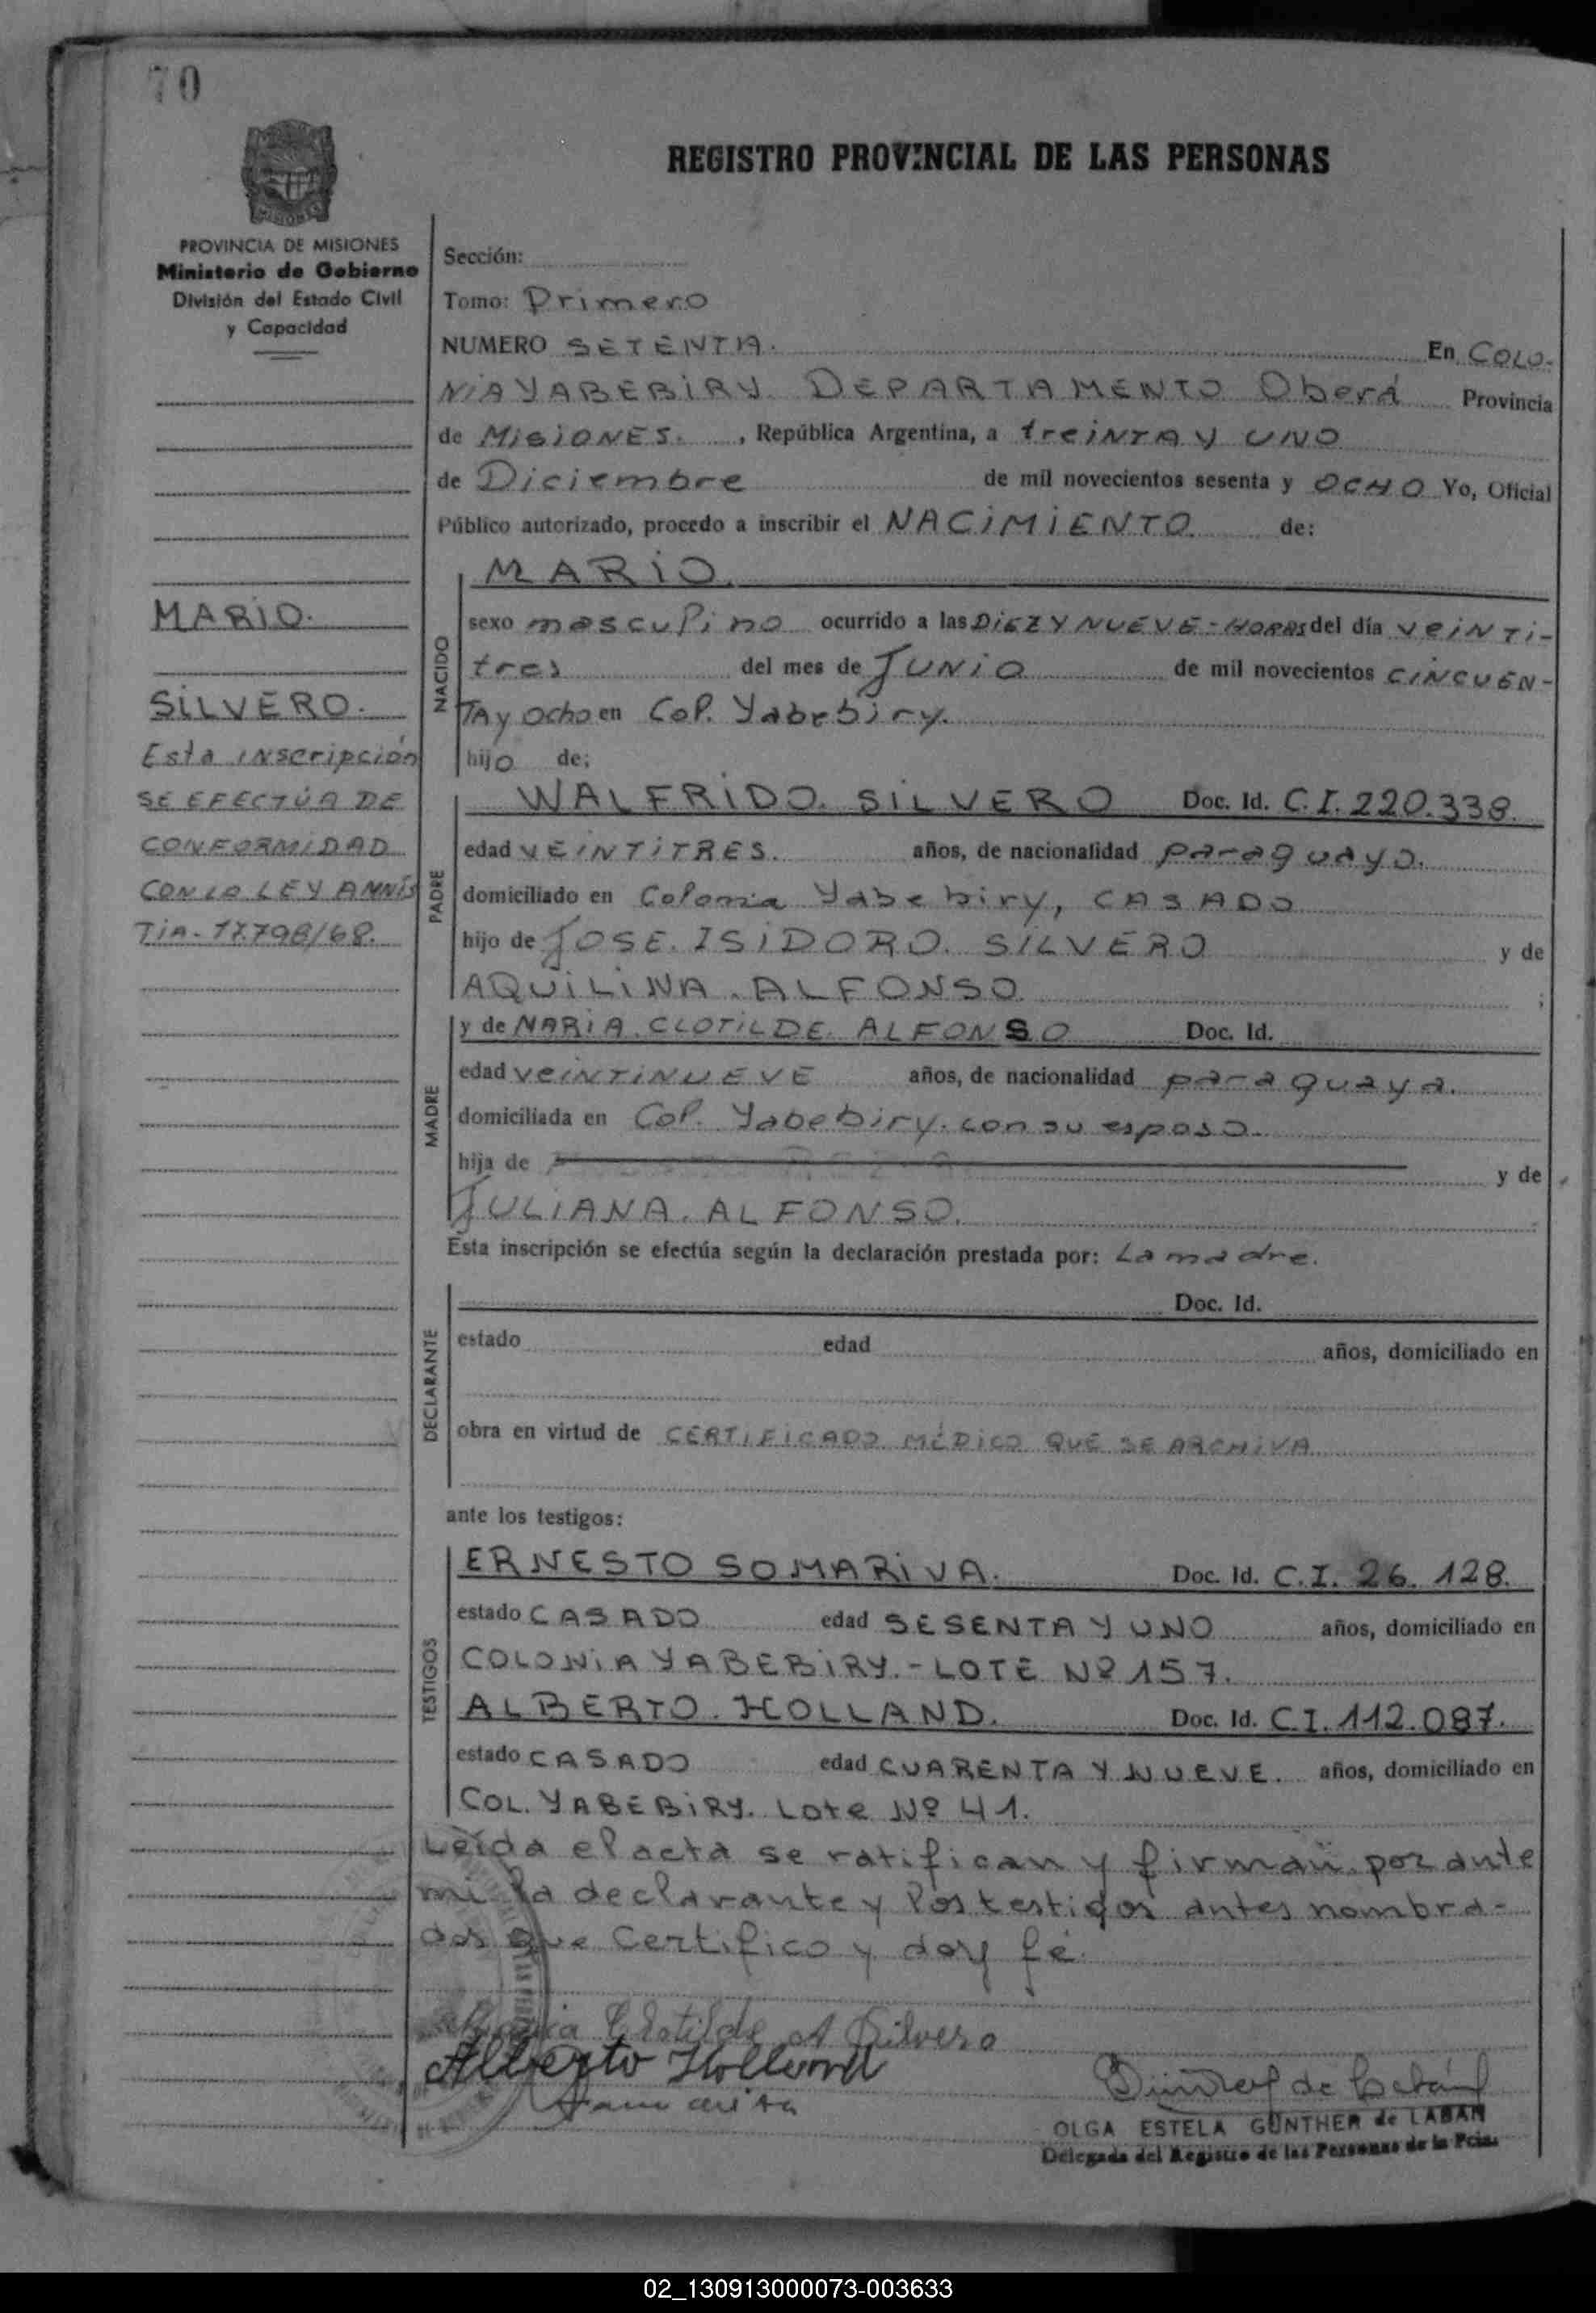 70
REGISTRO PROVINCIAL DE LAS PERSONAS
MISIONES
PROVINCIA DE MISIONES
Ministerio de Gobierno
División del Estado Civil
y Capacidad
MARIO.
SILVERO.
Esta inscripción
SE EFECTÚA DE
CONFORMIDAD
CON LA LEY AMNIS
TIA. 17.798/68.
Sección:
Tomo: Primero
NUMERO SETENTA. En COLO-
NIA YABEBIRY. DEPARTAMENTO Oberá Provincia
de MISIONES. , República Argentina, a treINTA y UNO
de Diciembre de mil novecientos sesenta y OCHO Yo, Oficial
Público autorizado, procedo a inscribir el NACIMIENTO de:
NACIDO
MARIO.
sexo masculino ocurrido a las DIEZ Y NUEVE - HORAS del día VEINTI-
tres del mes de JUNIO de mil novecientos CINCUEN-
TA y ocho en Col. Yabebiry.
hijo de;
PADRE
WALFRIDO. SILVERO Doc. Id. C.I. 220.338.
edad VEINTITRES. años, de nacionalidad paraguayo.
domiciliado en Colonia Yabebiry, CASADO
hijo de JOSE. ISIDORO. SILVERO y de
AQUILINA. ALFONSO ;
MADRE
y de MARIA. CLOTILDE. ALFONSO Doc. Id.
edad VEINTINUEVE años, de nacionalidad paraguaya.
domiciliada en Col. Yabebiry. con su esposo.
hija de y de
JULIANA. ALFONSO.
Esta inscripción se efectúa según la declaración prestada por: La madre.
DECLARANTE
Doc. Id.
estado edad años, domiciliado en
obra en virtud de CERTIFICADO MÉDICO QUE SE ARCHIVA
ante los testigos:
TESTIGOS
ERNESTO SOMARIVA. Doc. Id. C.I. 26.128.
estado CASADO edad SESENTA Y UNO años, domiciliado en
COLONIA YABEBIRY. - LOTE Nº 157.
ALBERTO. HOLLAND. Doc. Id. C.I. 112.087.
estado CASADO edad CUARENTA Y NUEVE. años, domiciliado en
COL. YABEBIRY. Lote Nº 41.
Leída el acta se ratifican y firman por ante
mi la declarante y los testigos antes nombra-
dos que Certifico y doy fé.
Maria Clotilde A Silvero
Alberto Holland
OLGA ESTELA GÜNTHER de LABAN
Delegada del Registro de las Personas de la Pcia.
02_130913000073-003633